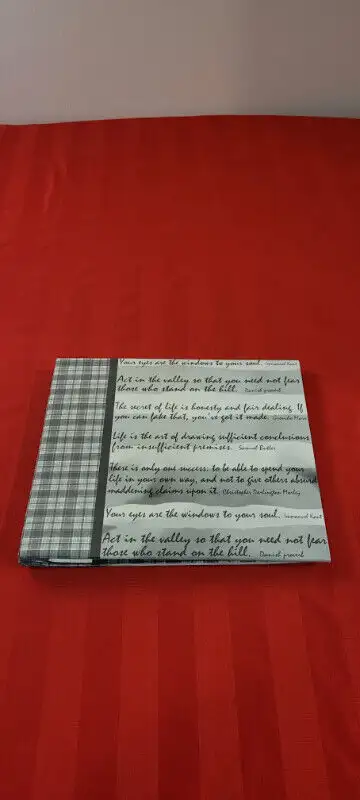 Your eyes are the windows to your soul. Immanuel Kant
Act in the valley so that you need not fear
those who stand on the hill. Danish proverb
The secret of life is honesty and fair dealing. If
you can fake that, you've got it made. Groucho Marx
Life is the art of drawing sufficient conclusions
from insufficient premises. Samuel Butler
There is only one success: to be able to spend your
life in your own way, and not to give others absurd
maddening claims upon it. Christopher Darlington Morley
Your eyes are the windows to your soul. Immanuel Kant
Act in the valley so that you need not fear
those who stand on the hill. Danish proverb